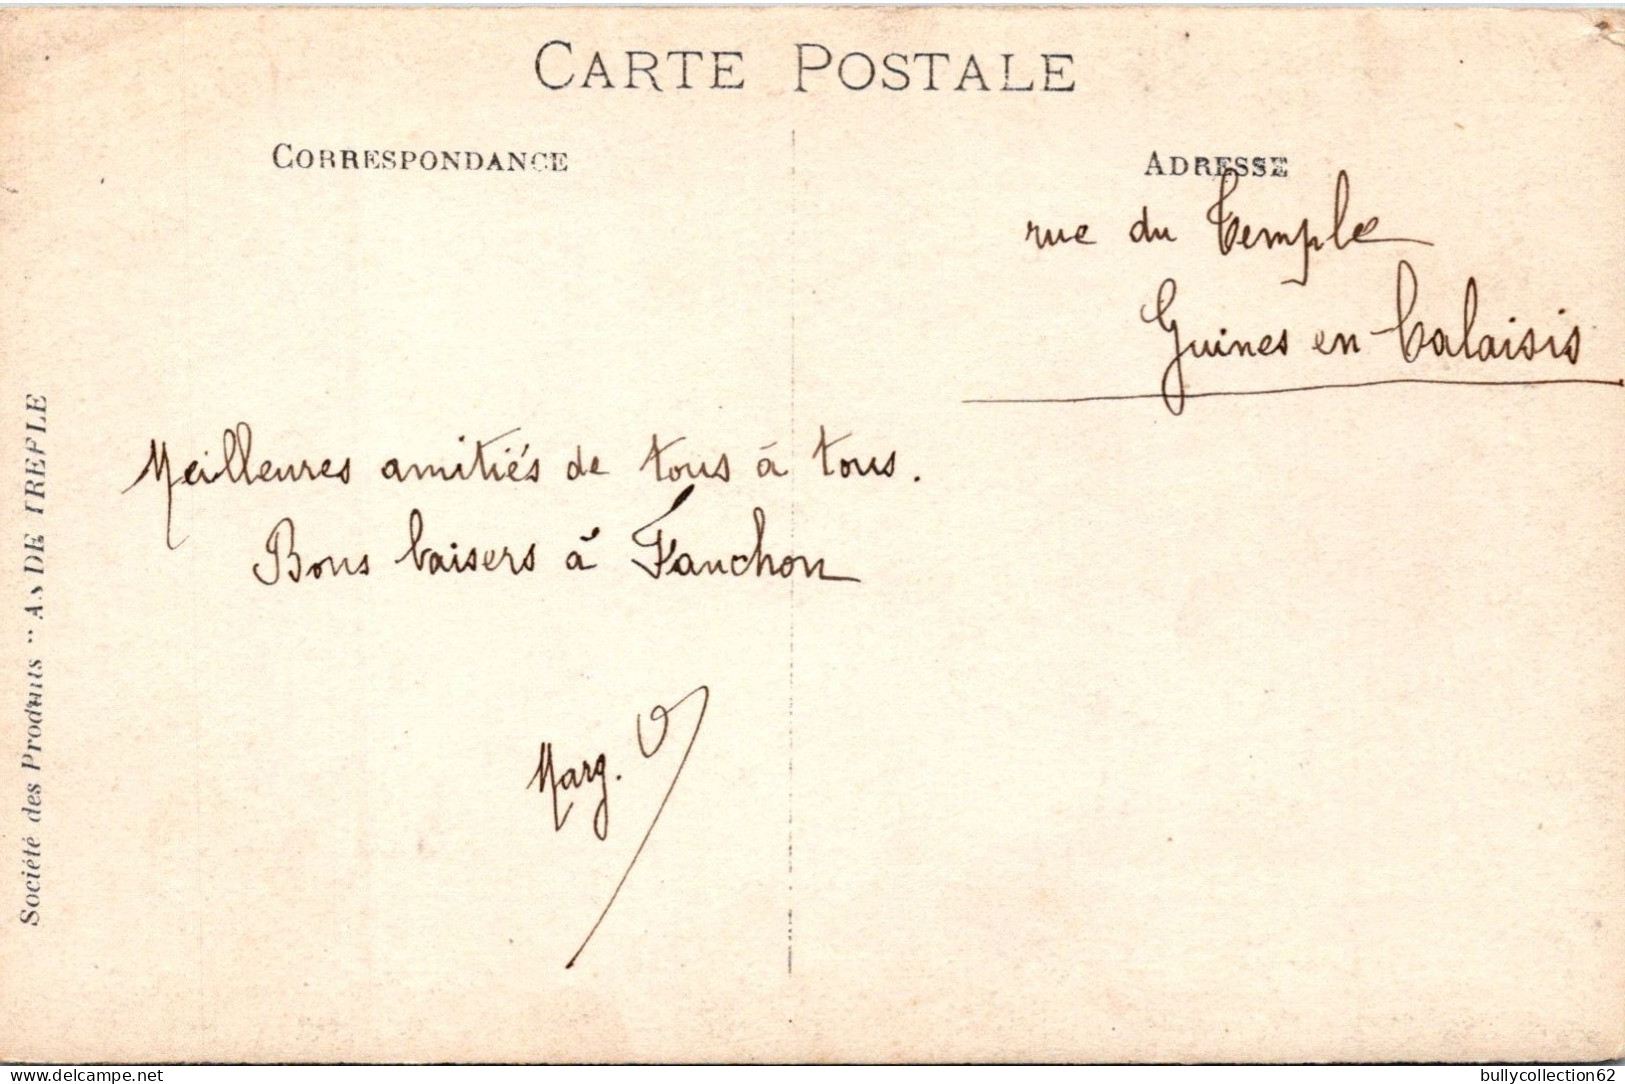 CARTE POSTALE
CORRESPONDANCE
ADRESSE
rue du Temple
Guines en Calaisis
Meilleures amitiés de tous à tous.
Bons baisers à Fanchon
Marg. V
Société des Produits "AS DE TREFLE
www.delcampe.net
bullycollection62